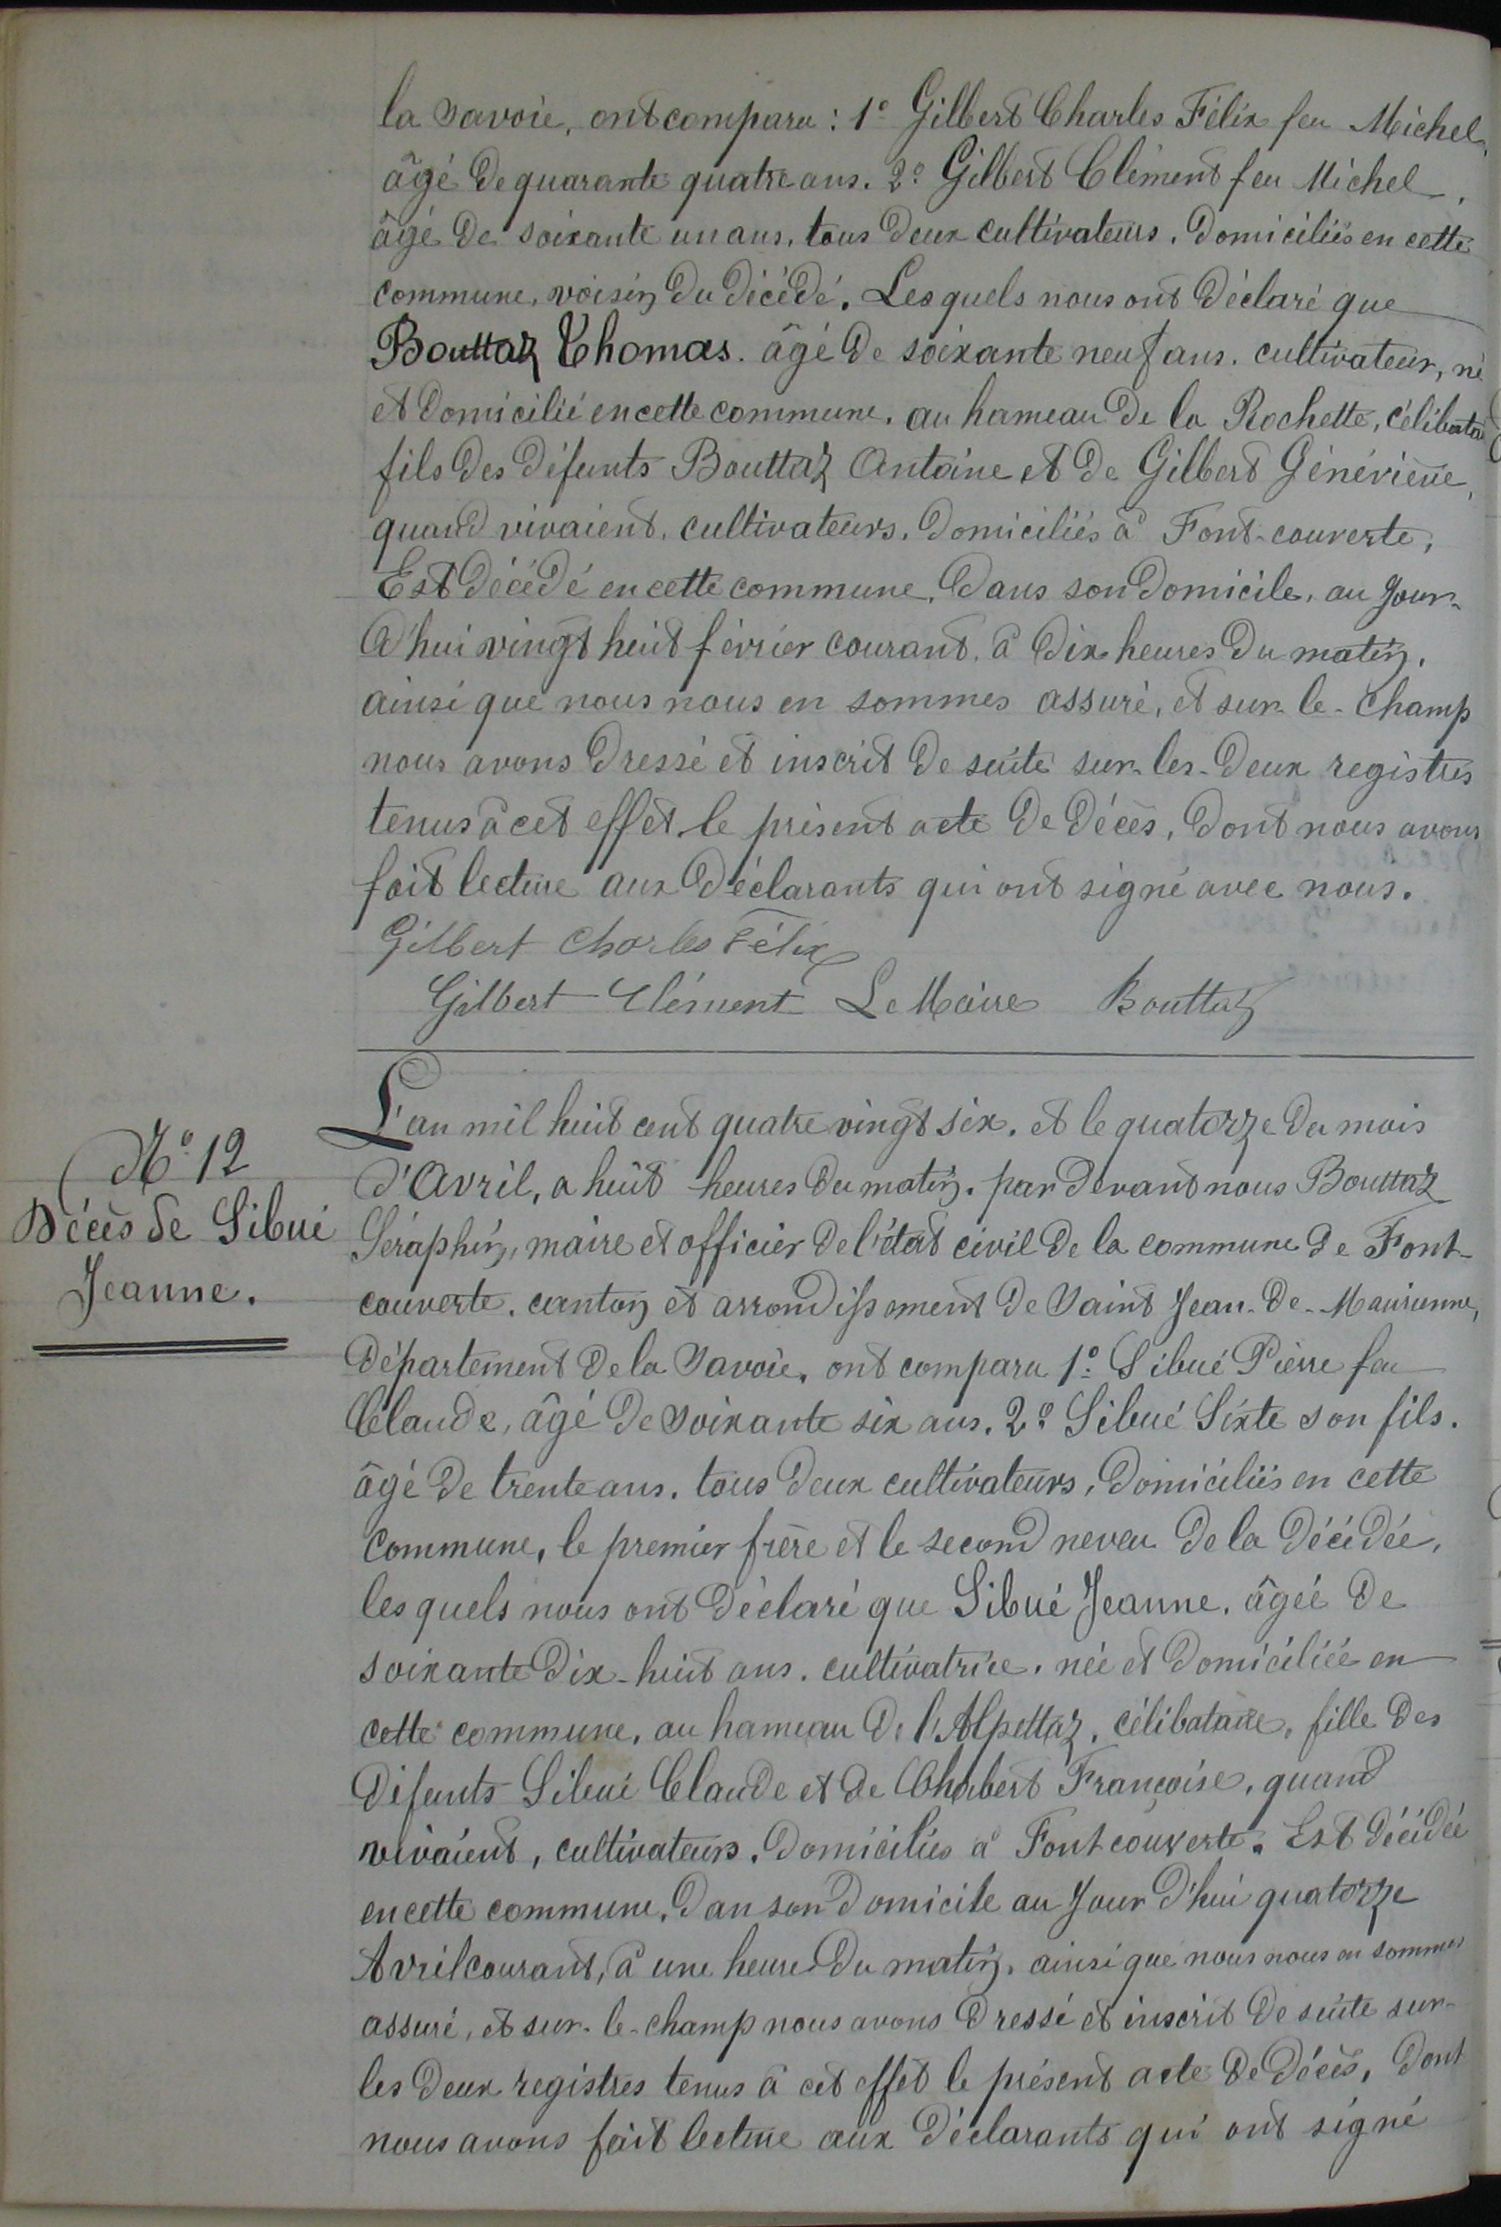 la Savoie, ont comparu : 1° Gilbert Charles Félix feu Michel,
âgé de quarante quatre ans. 2° Gilbert Clément feu Michel,
âgé de soixante un ans, tous deux cultivateurs, domiciliés en cette
commune, voisin du décédé. Lesquels nous ont déclaré que
Bouttaz Thomas. âgé de soixante neuf ans. cultivateur, né
et domicilié en cette commune, au hameau de la Rochette, célibataire
fils des défunts Bouttaz Antoine et de Gilbert Généviève,
quand vivaient, cultivateurs, domiciliés à Font-couverte,
Est décédé en cette commune, dans son domicile, au jour-
d'hui vingt huit février courant, à dix heures du matin,
ainsi que nous nous en sommes assuré, et sur-le-champ
nous avons dressé et inscrit de suite sur-les-deux registres
tenus à cet effet, le présent acte de décès, dont nous avons
fait lecture aux déclarants qui ont signé avec nous.
Gilbert Charles Félix
Gilbert Clément Le Maire Bouttaz
L'an mil huit cent quatre vingt six, et le quatorze du mois
N° 12
d'Avril, a huit heures du matin, par devant nous Bouttaz
Décès de Sibué
Séraphin, maire et officier de l'état civil de la commune de Font-
Jeanne.
couverte, canton et arrondissement de Saint Jean-de-Maurienne,
département de la Savoie, ont comparu 1° Sibué Pierre feu
Claude, âgé de soixante six ans. 2° Sibué Sixte son fils.
âgé de trente ans, tous deux cultivateurs, domiciliés en cette
commune, le premier frère et le second neveu de la décédée,
les quels nous ont déclaré que Sibué Jeanne, âgée de
soixante dix-huit ans. cultivatrice, née et domiciliée en
cette commune, au hameau de l'Alpettaz, célibataire, fille des
défunts Sibué Claude et de Chabert Françoise, quand
vivaient, cultivateurs, domiciliés à Fontcouverte. Est décédée
en cette commune, dan son domicile au jour d'hui quatorze
Avril courant, à une heure du matin, ainsi que nous nous en sommes
assuré, et sur-le-champ nous avons dressé et inscrit de suite sur-
les deux registres tenus à cet effet le présent acte de décès, dont
nous avons fait lecture aux déclarants qui ont signé